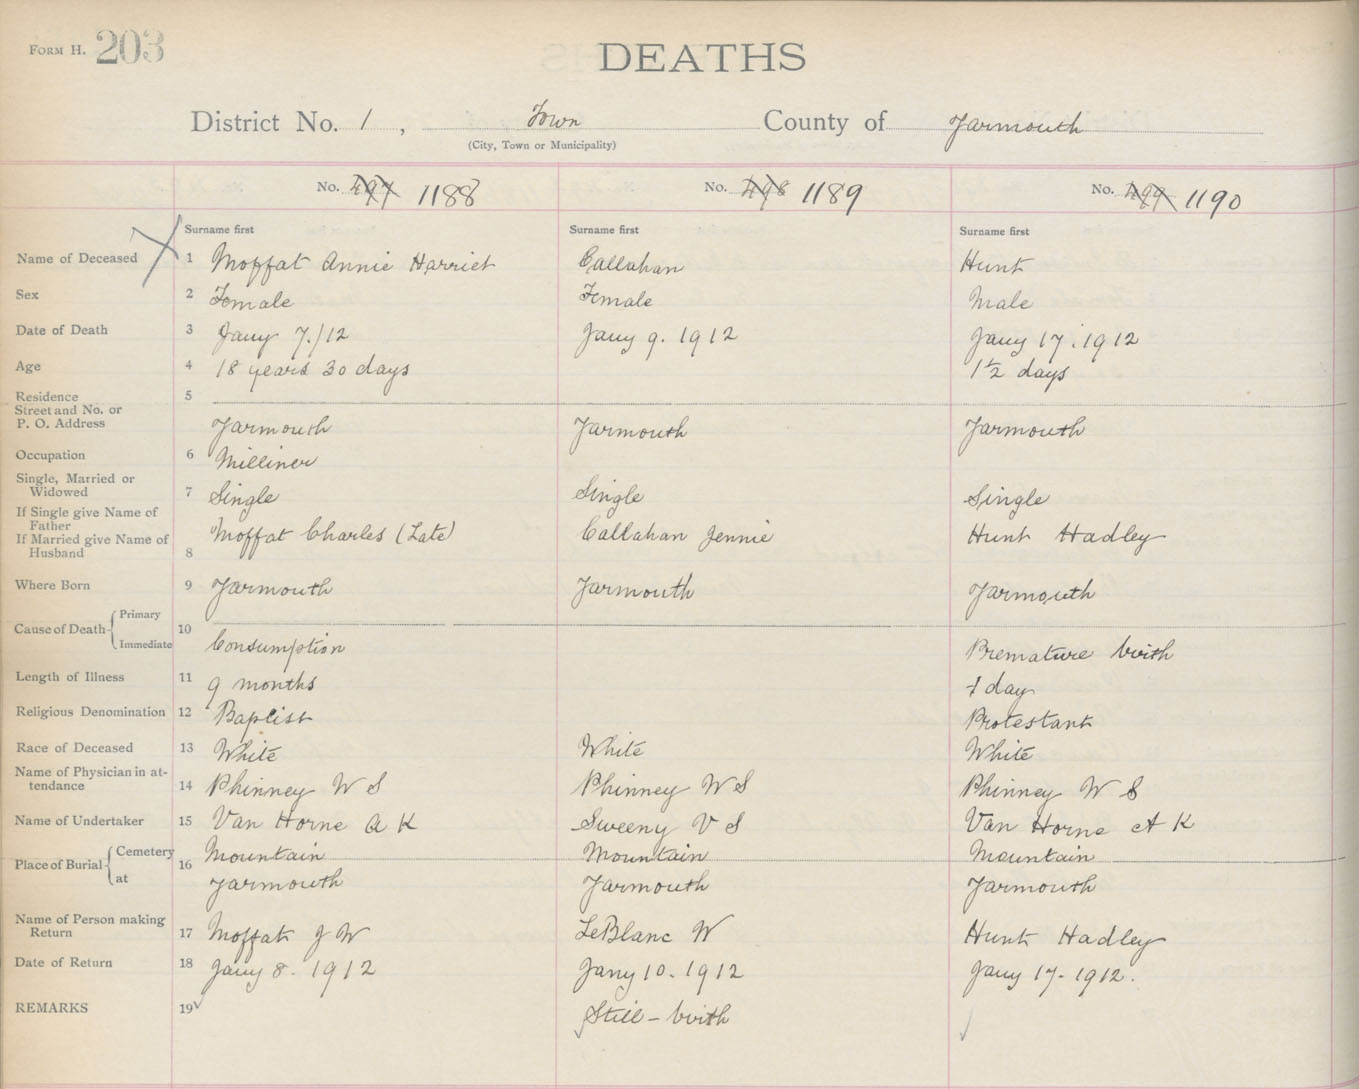 FORM H. 203
DEATHS
District No. 1, Town County of Yarmouth
(City, Town or Municipality)
No. 497 1188 No. 498 1189 No. 499 1190
Surname first Surname first Surname first
Name of Deceased 1 Moffat Annie Harriet Callahan Hunt
Sex 2 Female Female Male
Date of Death 3 Jany 7./12 Jany 9. 1912 Jany 17. 1912
Age 4 18 years 30 days 1 1/2 days
Residence 5
Street and No. or
P. O. Address Yarmouth Yarmouth Yarmouth
Occupation 6 Milliner
Single, Married or
Widowed 7 Single Single Single
If Single give Name of
Father
If Married give Name of Moffat Charles (Late) Callahan Jennie Hunt Hadley
Husband 8
Where Born 9 Yarmouth Yarmouth Yarmouth
Primary
Cause of Death 10
Immediate Consumption Premature birth
Length of Illness 11 9 months 1 day
Religious Denomination 12 Baptist Protestant
Race of Deceased 13 White White White
Name of Physician in at-
tendance 14 Phinney W S Phinney W S Phinney W S
Name of Undertaker 15 Van Horne A K Sweeny V S Van Horne A K
Cemetery Mountain Mountain Mountain
Place of Burial 16
at Yarmouth Yarmouth Yarmouth
Name of Person making
Return 17 Moffat J W LeBlanc W Hunt Hadley
Date of Return 18 Jany 8. 1912 Jany 10. 1912 Jany 17. 1912.
REMARKS 19 Still-birth